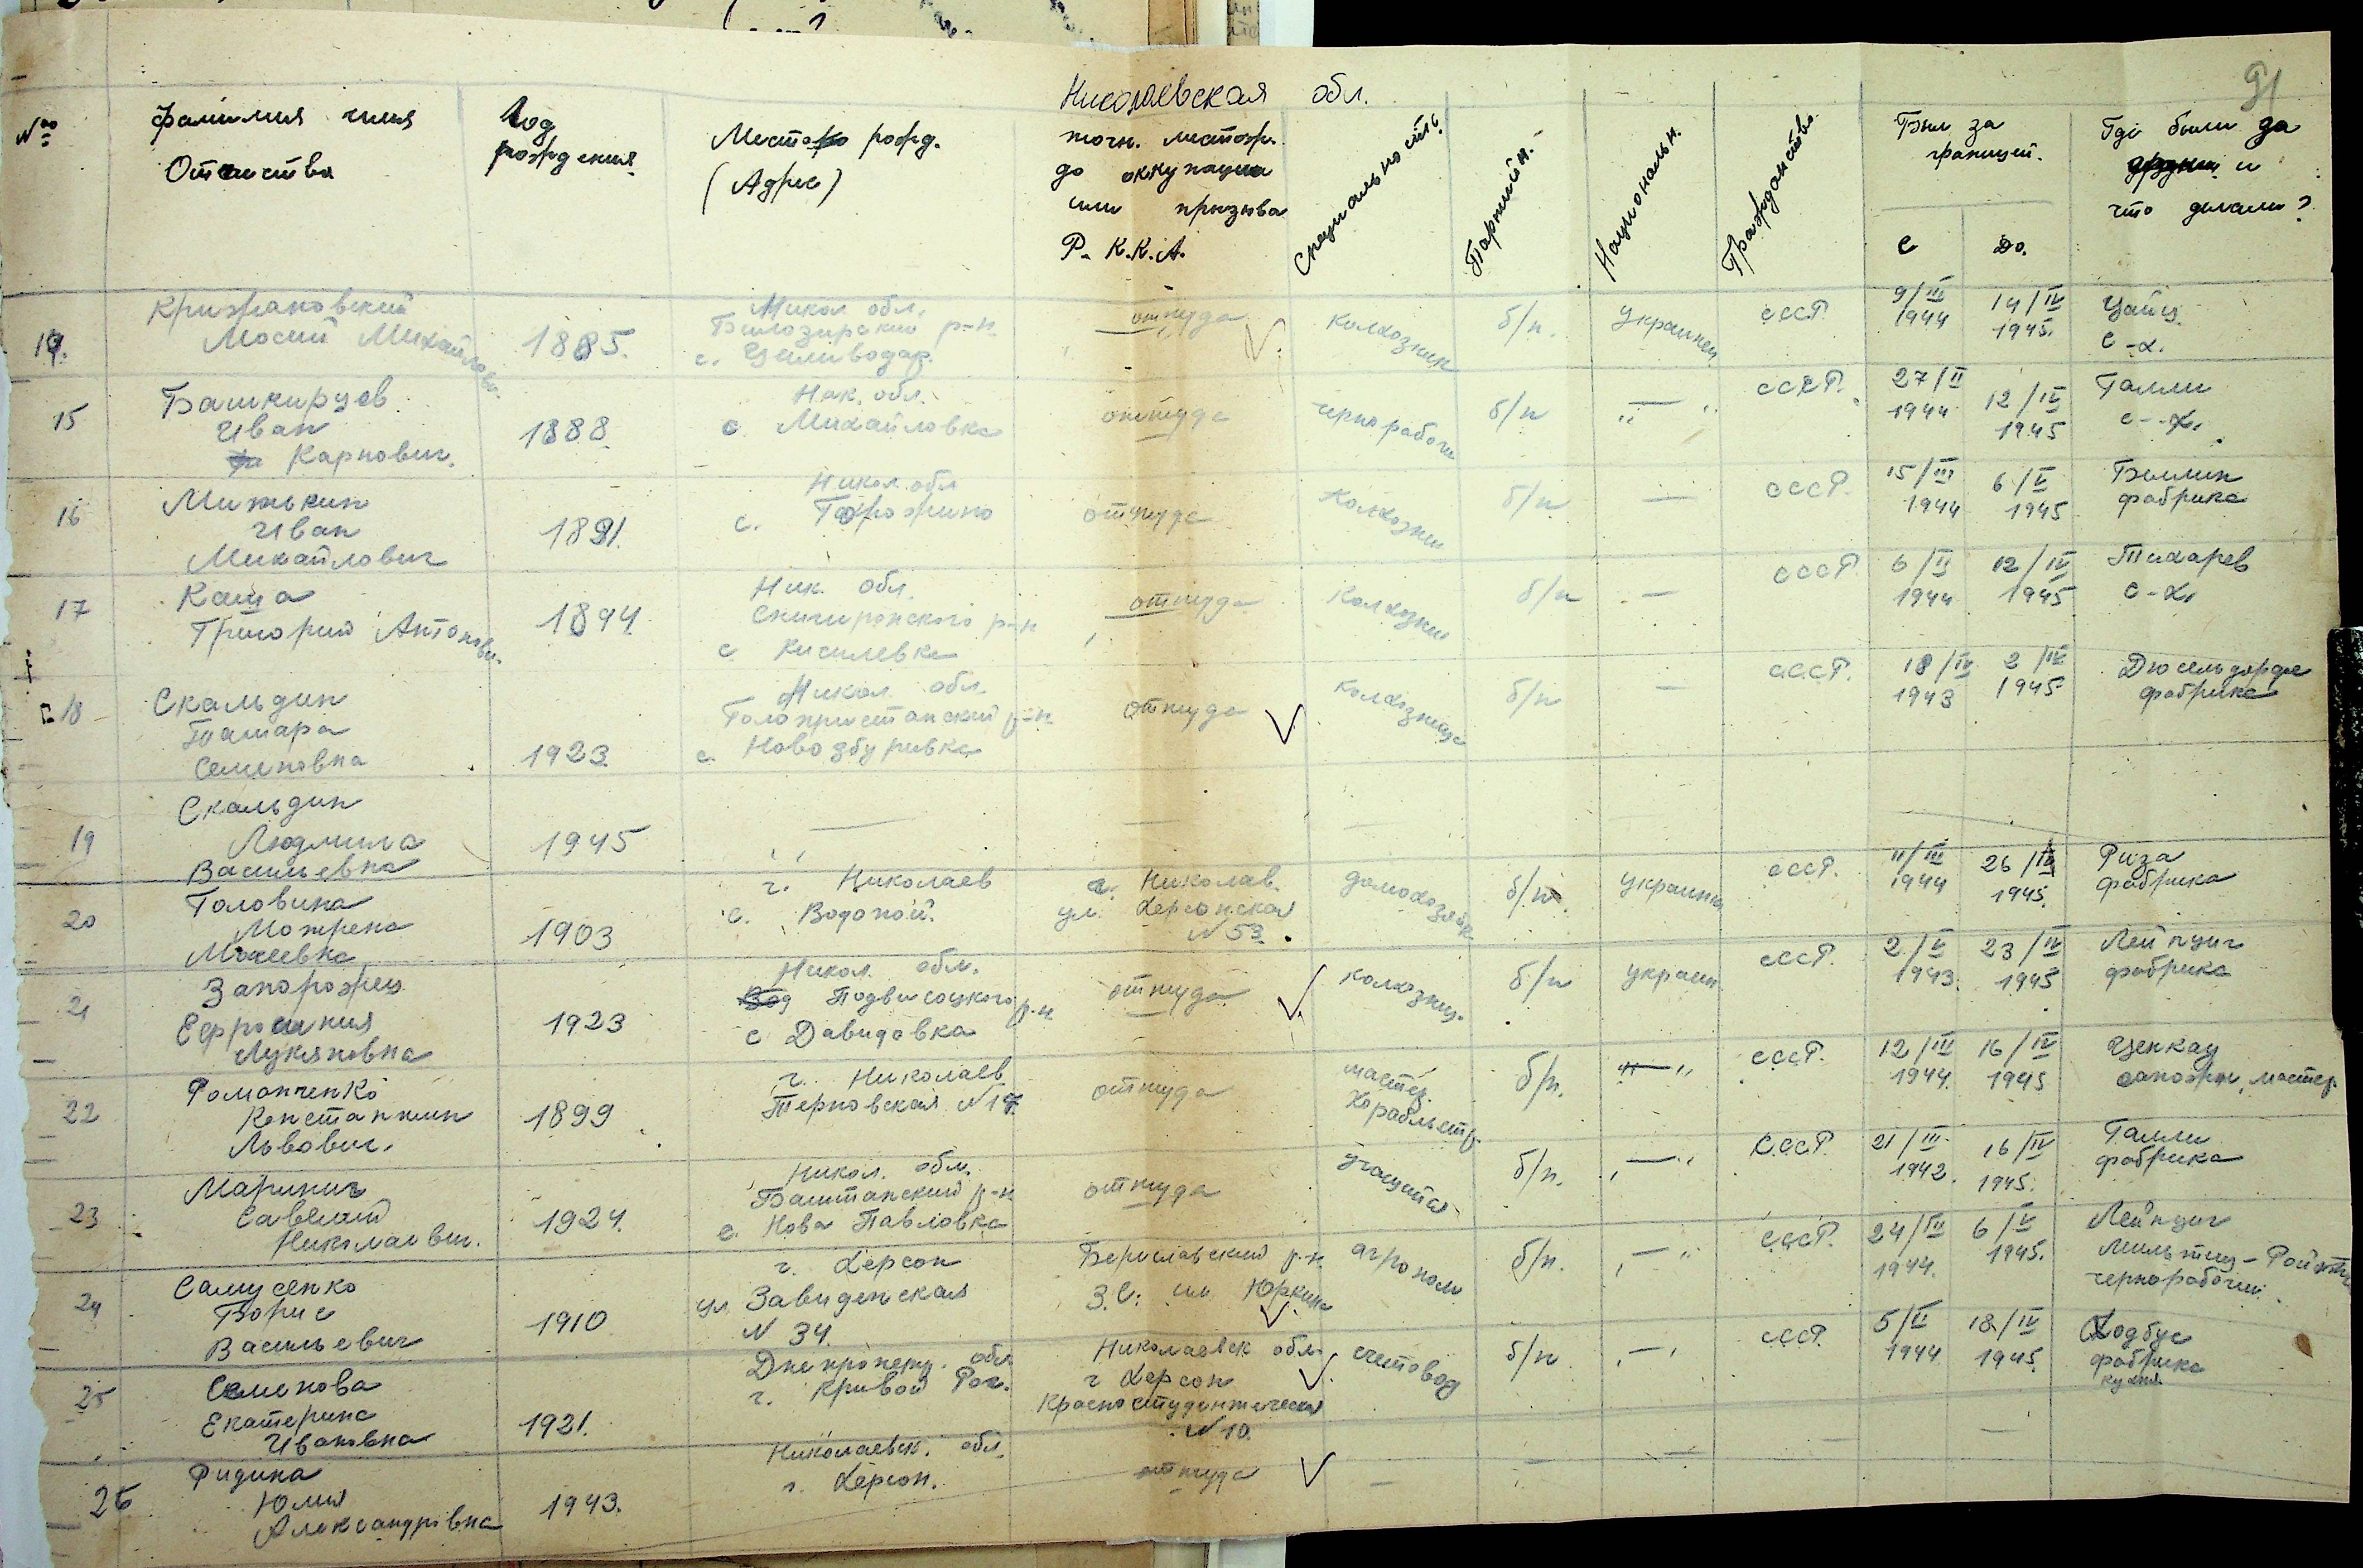 91
Николаевская обл.
№
Фамилия имя
Отчества
Год
рождения
Место рожд.
(Адрес)
точн. местож.
до оккупации
или призыва
Р. К.К.А.
Специальность
Партийн.
Национальн.
Гражданство
Был за
границей.
С
До.
Где были за
и
что делали?
Крижановский
Мосий Михайлович
1885.
Микол обл.
Билозирский р-н
с.
оттуда
колхозник
б/п.
украинец
СССР
9/III
1944
14/IV
1945.
Цайц
С-х.
15
Башкирцев
Иван
Карпович.
1888
Ник. обл.
с Михайловка
оттуда
чернорабочи
б/п
СССР.
27/II
1944
12/IV
1945
Галли
с-х.
16
Иван
Михайлович
Никол. обл
с.
оттуда
колхозник
б/п
—
СССР.
15/III
1944
6/V
1945
фабрика
17
Каша
Григорий Антонович
1894
Ник. обл.
Снигиронского р-н
с Киселевка
оттуда
колхозник
б/п
—
СССР
6/II
1944
12/IV
1945
Тихарев
с-х.
18
Скальдин
Тамара
Семеновна
1923
Микол. обл.
Голопристанский р-н
с. Новозбуривка
оттуда
колхозница
б/п
—
СССР.
18/IV
1943
2/IV
1945
Дюсельдорф
фабрика
19
Скальдин
Людмила
Васильевна
1945
—
—
—
20
Головина
Мотрена
Мокеевна
1903
г. Николаев
с. Водопой.
г. Николав.
ул. Херсонская
N 53.
домохозяйк
б/п.
украинка
СССР.
11/III
1944
26/IV
1945.
Риза
фабрика
21
Запорожец
Ефросиния
Лукяновна
1923
Никол. обл.
Подвисоцкого р-н
с Давидовка
оттуда
колхозниц.
б/п
украин
СССР.
2/V
1943.
23/IV
1945
Лейпциг
фабрика
22
Романченко
Константин
Львович.
1899
г. Николаев
Терновская N 17
оттуда
мастер.
Корабльстр.
б/п.
„—„
СССР.
12/III
1944.
16/IV
1945
Ценкау
сапожн. мастер.
23
Маринич
Савелий
Николаевич.
1924.
Никол. обл.
Баштанский р-н
с. Нова Павловка
оттуда
учащийся
б/п.
„—„
СССР.
21/III
1942.
16/IV
1945.
Галли
фабрика
24
Самусенко
Борис
Васильевич
1910
г. Херсон
ул Завиденская
N 34.
Бериславский р-н
З.С. им Юркина
агроном
б/п.
„—„
СССР.
24/III
1944.
6/V
1945.
Лейпциг
чернорабочий
25
Семенова
Екатерина
Ивановна
1921.
Днепропетр. обл
г. Кривой Рог.
Николаевск обл.
г Херсон
Красностуденческая
N 10.
счетовод
б/п
„—„
СССР.
5/II
1944
18/IV
1945.
Ходбус
фабрика
кухня.
26
Ридина
Юлия
Александрівна
1943.
Николаевск. обл.
г. Херсон.
оттуда
—
—
—
—